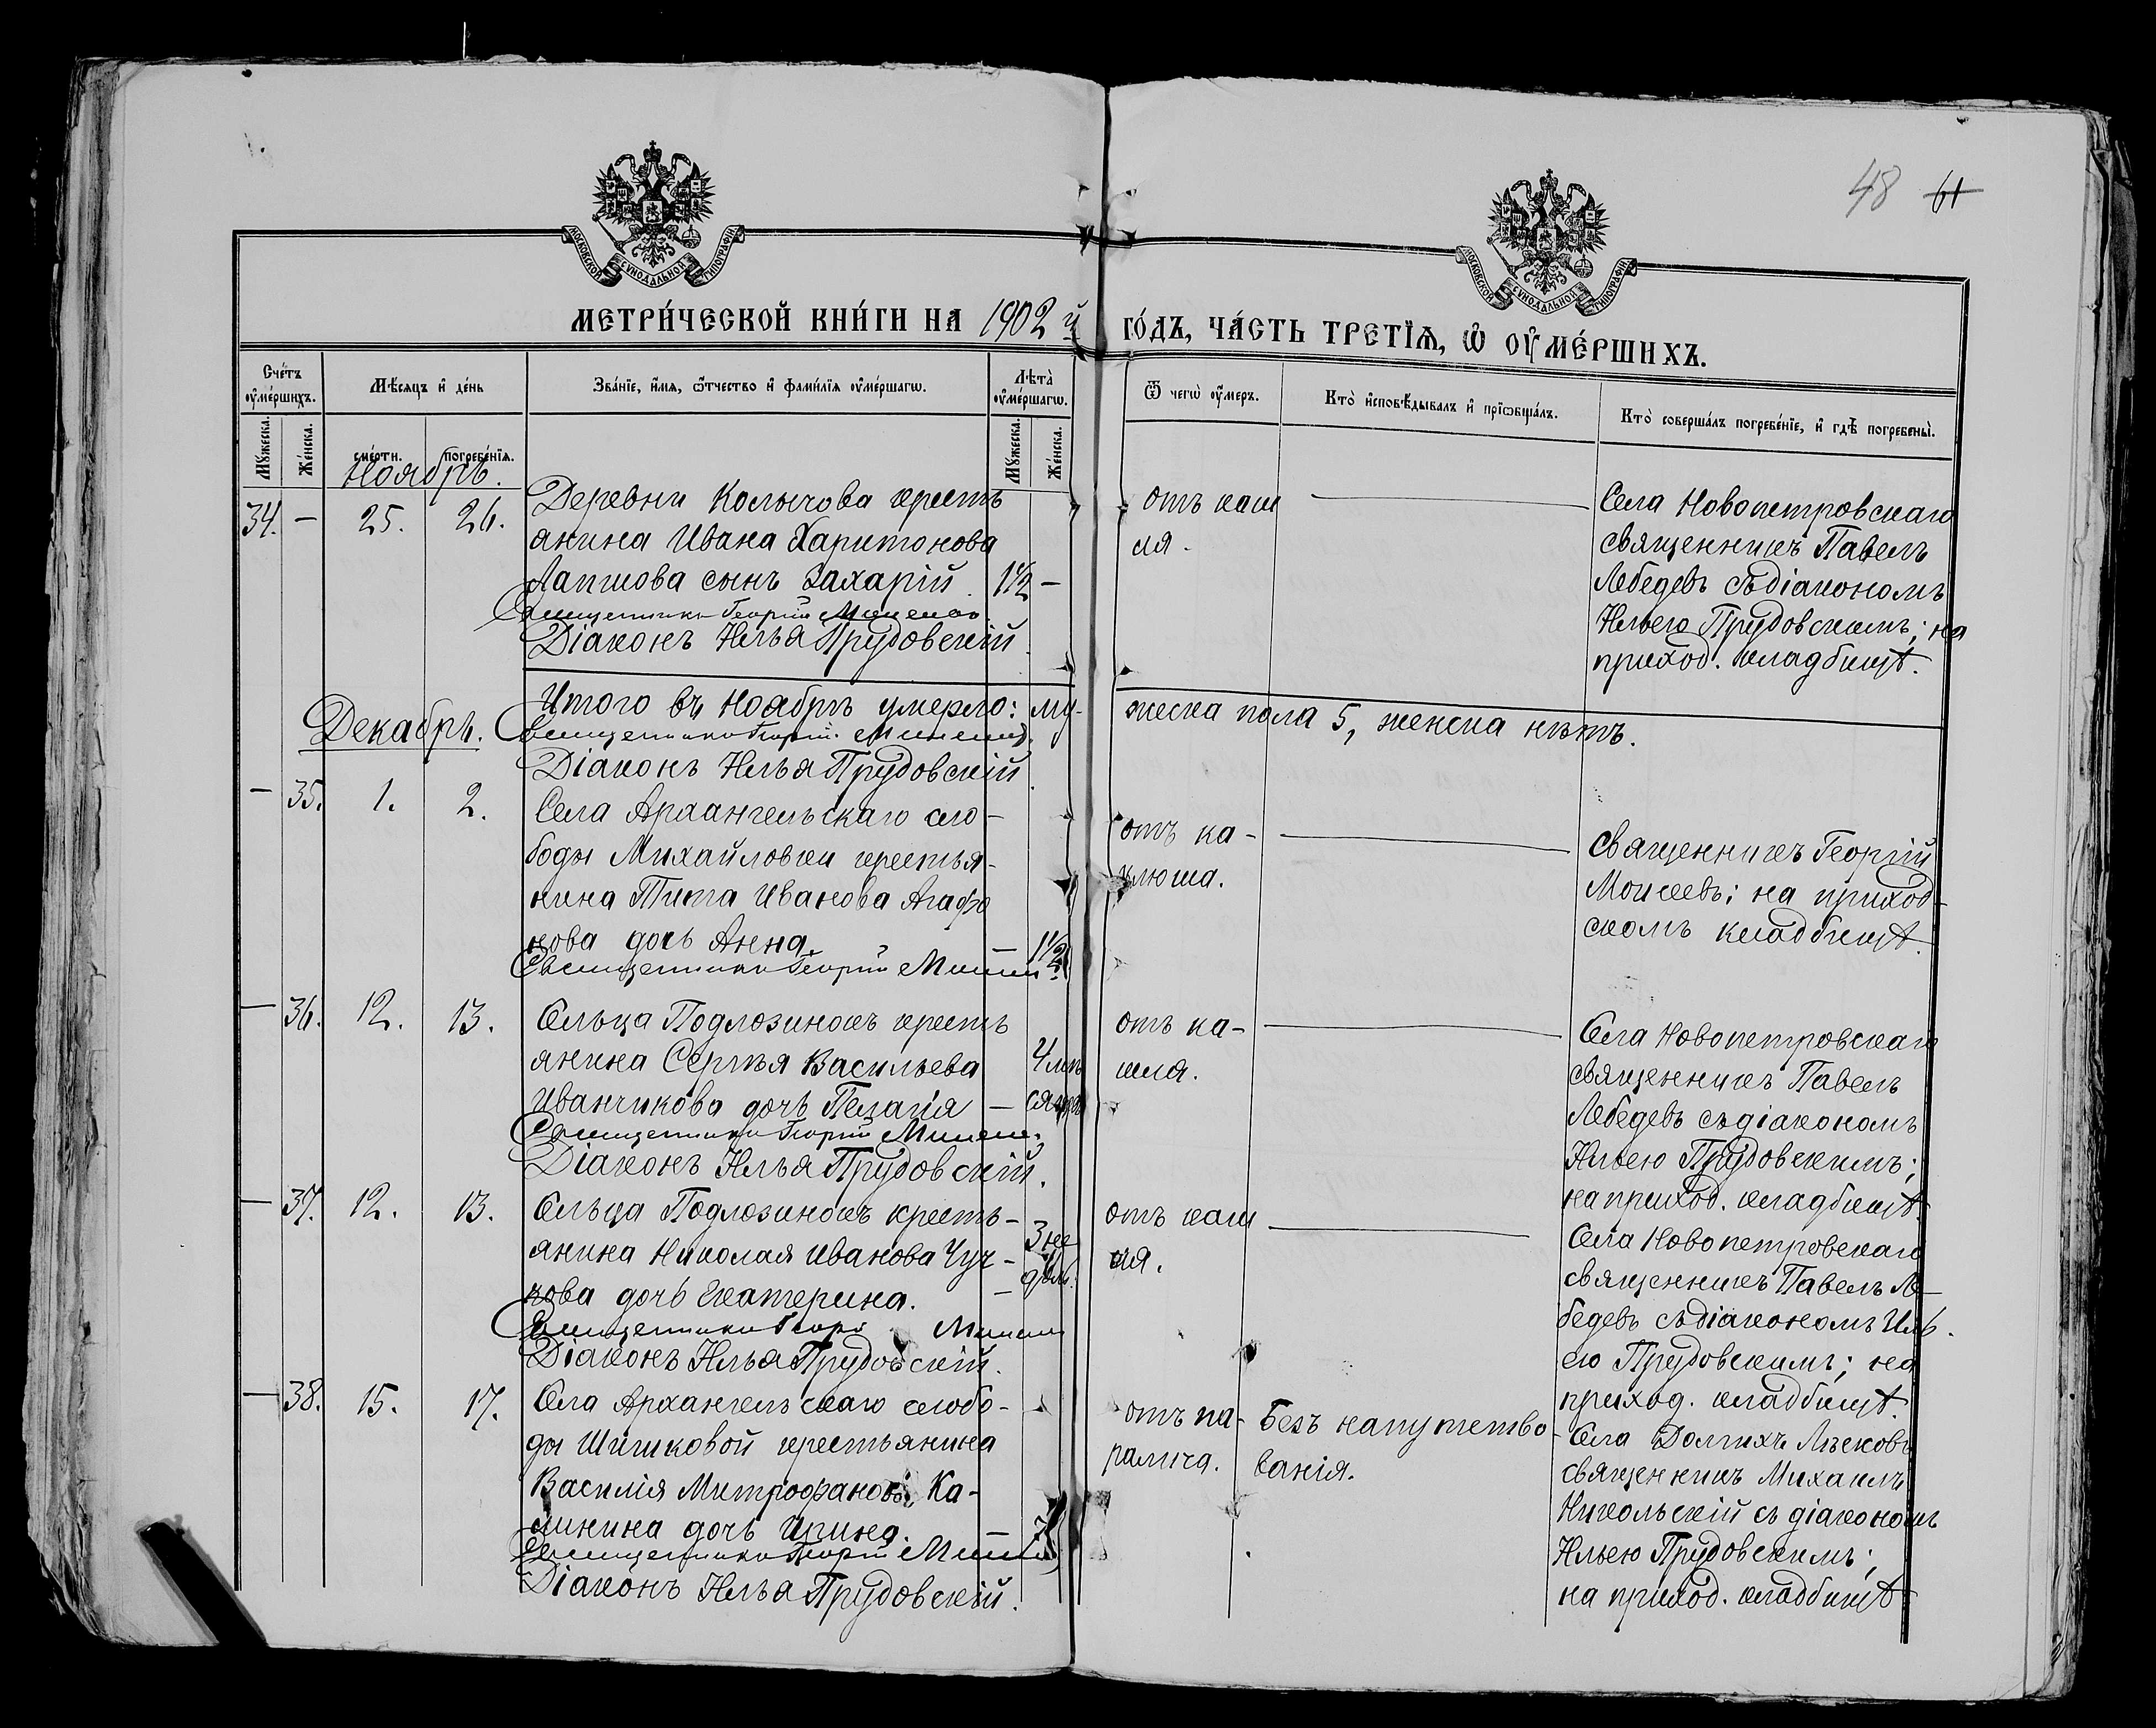 48 61
МОСКОВСКОЙ СѴНОДАЛЬНОЙ ТИПОГРАФІИ
МОСКОВСКОЙ СѴНОДАЛЬНОЙ ТИПОГРАФІИ
МЕТРИ́ЧЕСКОЙ КНИ́ГИ НА 1902 й ГО́ДЪ, ЧА́СТЬ ТРЕТЇѦ, Ѡ҆ ОУ҆МЕ́РШИХЪ.
Сче́тъ оу҆ме́ршихъ.
Мѣ́сяцъ и҆ де́нь
Зва́нїе, и҆́мя, ѻ҆́тчество и҆ фами́лїя оу҆ме́ршагѡ.
Лѣта̀ оу҆ме́ршагѡ.
Ѿ чегѡ̀ оу҆́мер.
Кто̀ и҆сповѣ́дывалъ и҆ прїѡбща́лъ.
Кто̀ соверша́лъ погребе́нїе, и҆ гдѣ̀ погребены̀.
Му́жеска.
Же́нска.
сме́рти.
погребе́нїя.
Му́жеска.
Же́нска.
Ноябрь.
34. — 25. 26.
Деревни Колычова кресть
янина Ивана Харитонова
Лапшова сынъ Захарій. 1½ —
Священникъ Георгій Моисеевъ
Діаконъ Илья Прудовскій.
отъ каш
ля.
Села Новопетровскаго
священникъ Павелъ
Лебедевъ съ діакономъ
Ильею Прудовскимъ; на
приход. кладбищѣ.
Итого въ Ноябрѣ умерло: му-
жеска пола 5, женска нѣтъ.
Священникъ Георгій Моисеевъ.
Діаконъ Илья Прудовскій
Декабрь.
— 35. 1. 2.
Села Архангельскаго сло-
боды Михайловки крестья-
нина Тита Иванова Агафо
нова дочь Анна. — 1½
Священникъ Георгій Моисеевъ
отъ ка-
клюша.
Священникъ Георгій
Моисеевъ; на приход-
скомъ кладбищѣ.
— 36. 12. 13.
Сельца Подлозинокъ кресть
янина Сергѣя Васильева
Иванчикова дочь Пелагія —
4 мѣ
сяца
Священникъ Георгій Моисеевъ
Діаконъ Илья Прудовскій.
отъ ка-
шля.
Села Новопетровскаго
священникъ Павелъ
Лебедевъ съ діакономъ
Ильею Прудовскимъ;
на приход. кладбищѣ.
— 37. 12. 13.
Сельца Подлозинокъ кресть-
янина Николая Иванова Чуч-
кова дочь Екатерина. —
3 не
дѣли.
Священникъ Георгій Моисеевъ
Діаконъ Илья Прудовскій.
отъ каш
ля.
Села Новопетровскаго
священникъ Павелъ Ле-
бедевъ съ діакономъ Иль-
ею Прудовскимъ; на
приход. кладбищѣ.
— 38. 15. 17.
Села Архангельскаго слобо-
ды Шишковой крестьянина
Василія Митрофанова Ка-
линина дочь Ирина. —
Священникъ Георгій Моисеевъ
Діаконъ Илья Прудовскій.
отъ па-
ралича.
Безъ напутство-
ванія.
Села Долгихъ Лѣсковъ
священникъ Михаилъ
Никольскій съ діакономъ
Ильею Прудовскимъ;
на приход. кладбищѣ